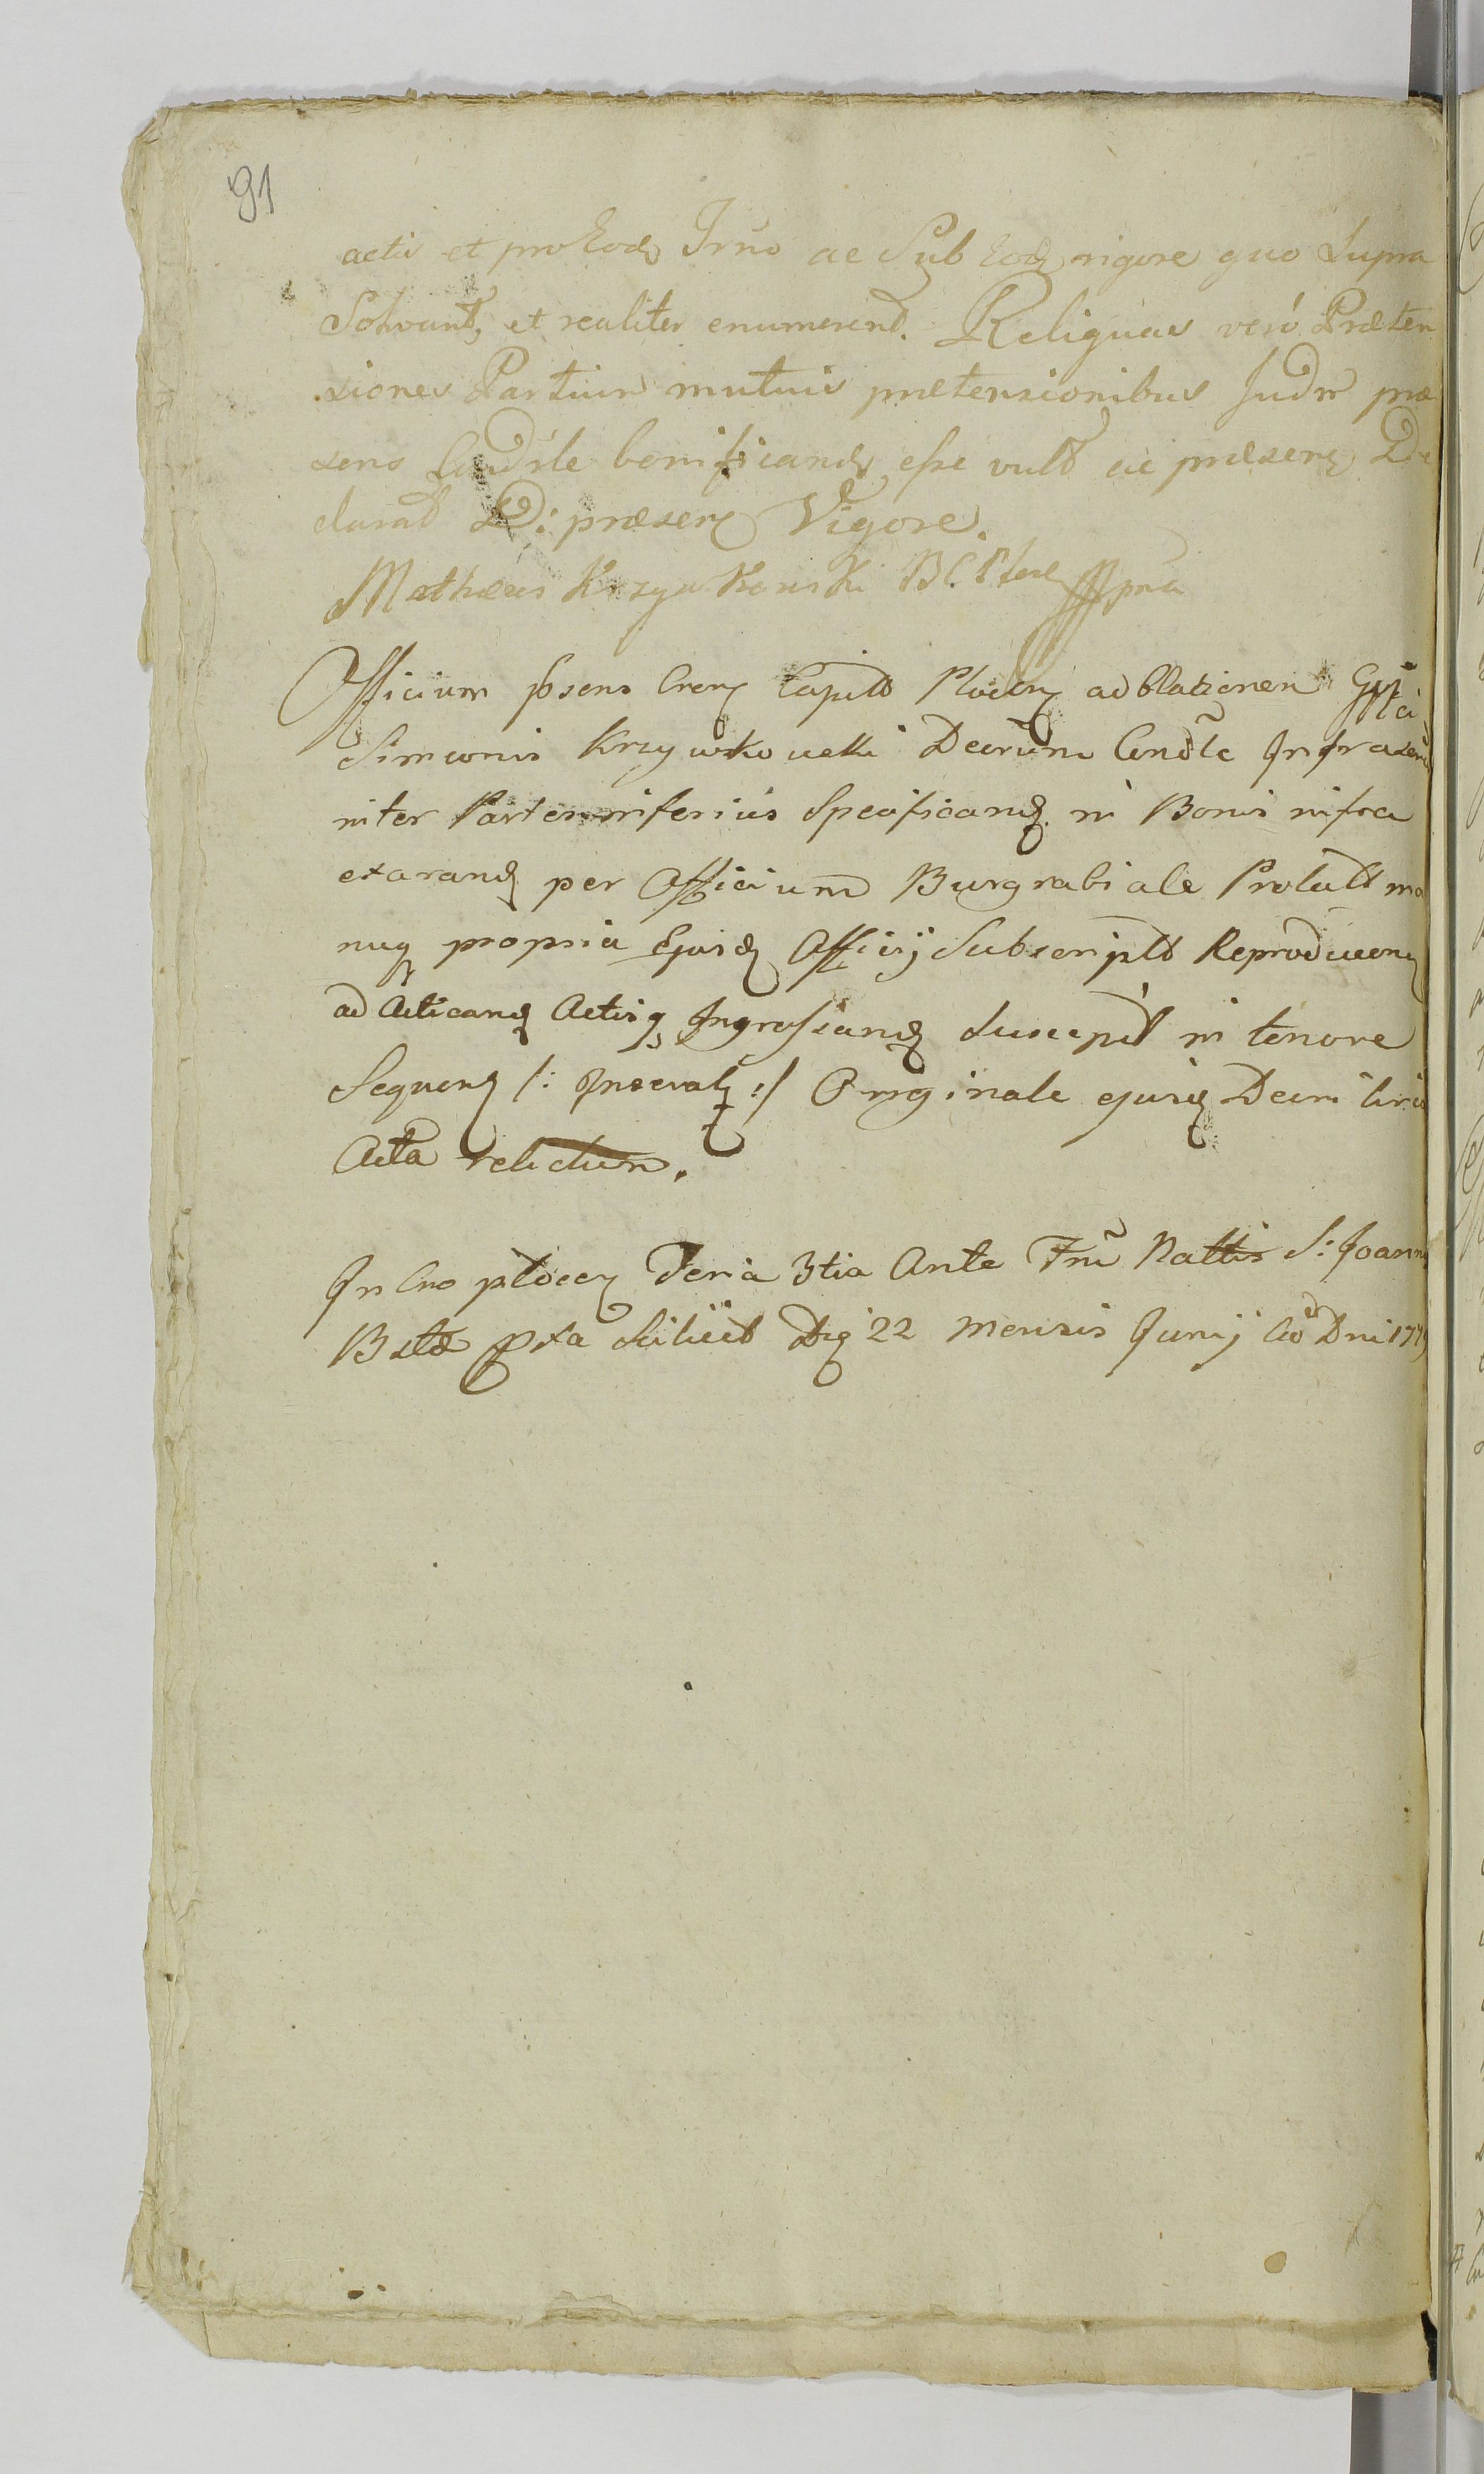 91
actis et pro Eod Trno ac Sub Eod rigore quo Supra
Solvant, et realiter enumerent. Reliquas veró Præten
siones Partium mutuis prætensionibus Judm præ
sens bonificand esse vult ac præsens De
clarat D: præsens Vigore.
Mathæus Krzywkowski B.C. mpria
Officium psens Crens Capit Plocen ad Oblationem
Simeonis Krzywkowski Decrum Condle Infrascrip
inter Partes inferiús Specificand in Bonis infra
exarand per Officium Burgrabiale Prolatt ma
nuq propria Ejusd Officij Subscriptt Reproducen
ad Acticand Actisq Ingrossand Suscepit in tenore
Sequen /: Inseratq :/ Originale ejusd Decri
Acta relictum.
In Cro plocen Feria 3tia Ante Ftm Nattis S: Joann
Bttæ pxa Scilicet Die 22 Mensis Junij Ao Dni 177